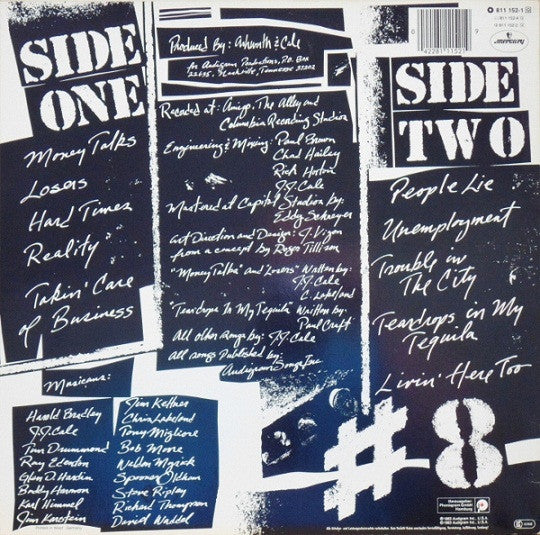 SIDE
ONE
Money Talks
Losers
Hard Times
Reality
Takin' Care
of Business
Produced By: Ashworth & Cale
for Audigram Productions, P.O. Box
22635, Nashville, Tennessee 37202
Recorded at: Amigo, The Alley and
Columbia Recording Studios
Engineering & Mixing: Paul Brown
Chad Hailey
Rich
J.J. Cale
Mastered at Capitol Studios by:
Eddy Schreyer
Art Direction and Design: J. Vigon
from a concept by Roger Tillison
"Money Talks" and Losers" Written by:
J.J. Cale
C. Lakeland
"Teardrops In My Tequila" Written by:
Paul Craft
All other songs by: J.J. Cale
All songs Published by:
Audigram Songs Inc
Musicians:
Harold Bradley
J.J. Cale
Tim Drummond
Ray Edenton
Glen D. Hardin
Buddy Harmon
Karl Himmel
Jim Karstein
Jim Keltner
Chris Lakeland
Tony Migliore
Bob Moore
Weldon Myrick
Spooner Oldham
Steve Ripley
Richard Thompson
David Waddel
Printed in West Germany
811 152-1
811 152-4
mercury
0 42281 1152 1
SIDE
TWO
People Lie
Unemployment
Trouble in
The City
Teardrops in My
Tequila
Livin' Here Too
#8
Herausgeber:
Phonogram GmbH
Hamburg
℗ 1983 Audigram Inc. U.S.A.
© 1983 Audigram Inc. U.S.A.